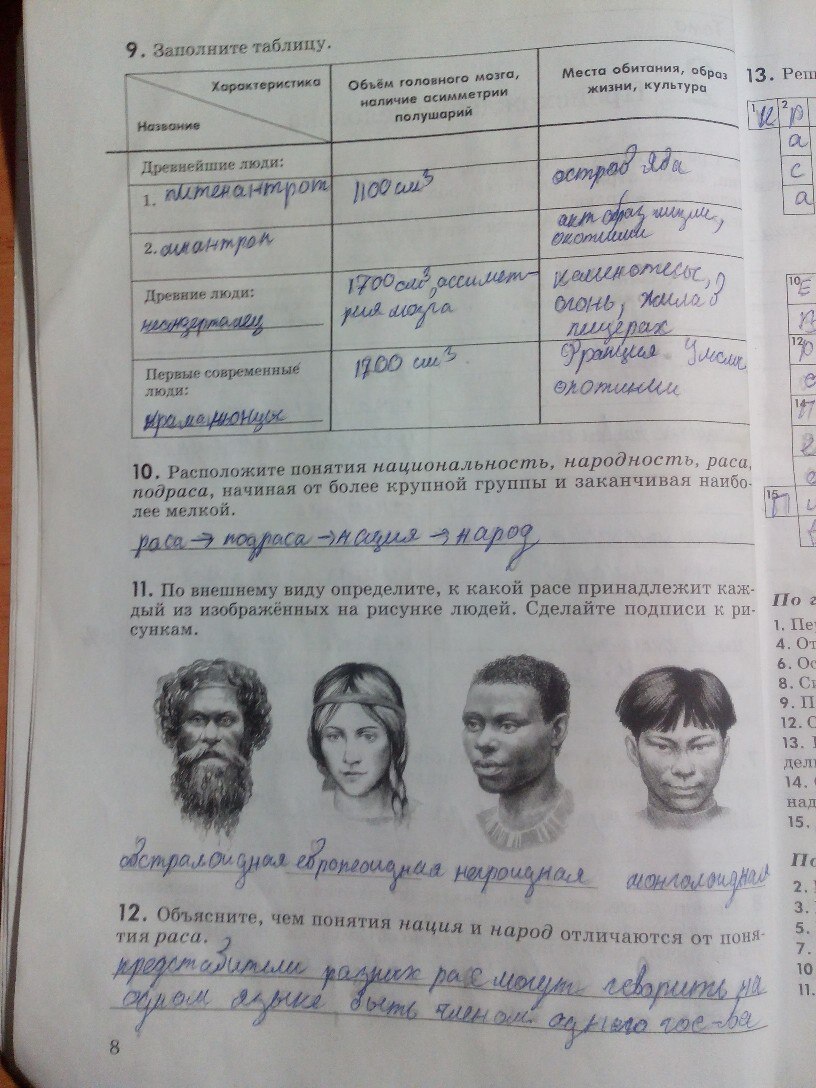 9. Заполните таблицу.
Характеристика
Название
Объём головного мозга,
наличие асимметрии
полушарий
Места обитания, образ
жизни, культура
Древнейшие люди:
1. питекантроп
1100 см³
остров Ява
2. синантроп
акт образ жизни,
охотники
Древние люди:
неондерталец
1700 см³, ассимет-
рия мозга
каменотесы,
огонь, жила в
пещерах
Первые современные
люди:
краманьонцы
1700 см³
Франция
охотники
10. Расположите понятия национальность, народность, раса,
подраса, начиная от более крупной группы и заканчивая наибо-
лее мелкой.
раса → подраса → нация → народ
11. По внешнему виду определите, к какой расе принадлежит каж-
дый из изображённых на рисунке людей. Сделайте подписи к ри-
сункам.
австралоидная европеоидная негроидная монголоидная
12. Объясните, чем понятия нация и народ отличаются от поня-
тия раса.
представители разных рас могут говорить на
одном языке быть членом одного гос-ва
8
13. Реш
1 К 2 р
а
с
а
10 Е
12 р
14 П
15 П
По г
1. Пе
4. От
6. Ос
8. Си
9. П
12. С
13.
дел
14.
над
15.
По
2.
3.
5.
7.
10
11.